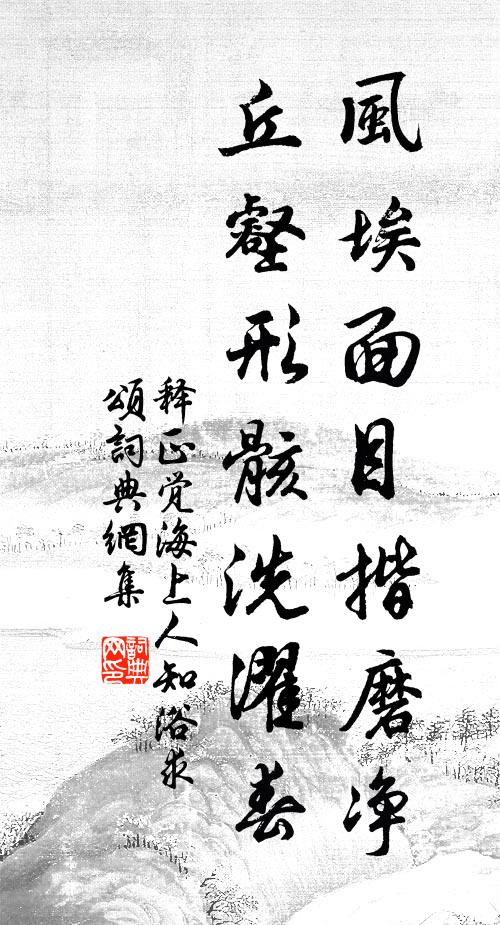 風埃面目揩磨净
丘壑形骸洗濯春
释正觉海上人知浴求
頌詞典網集
詞典
网印